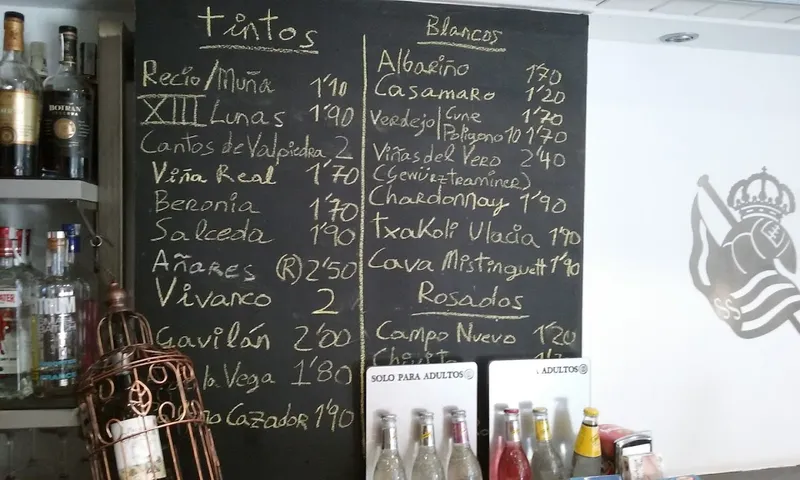 Tintos
Recio/Muña 1'10
XIII Lunas 1'90
Cantos de Valpiedra 2
Viña Real 1'70
Beronia 1'70
Salceda 1'90
Añares (R) 2'50
Vivanco 2
Gavilán 2'00
la Vega 1'80
Cazador 1'90
Blancos
Albariño 1'70
Casamaro 1'20
Verdejo | Cune 1'70
Poligono 10 1'70
Viñas del Vero 2'40
(Gewürztraminer)
Chardonnay 1'90
Txakoli Ulacia 1'90
Cava Mistinguett 1'90
Rosados
Campo Nuevo 1'20
SOLO PARA ADULTOS
ADULTOS
BOTRAN
SS